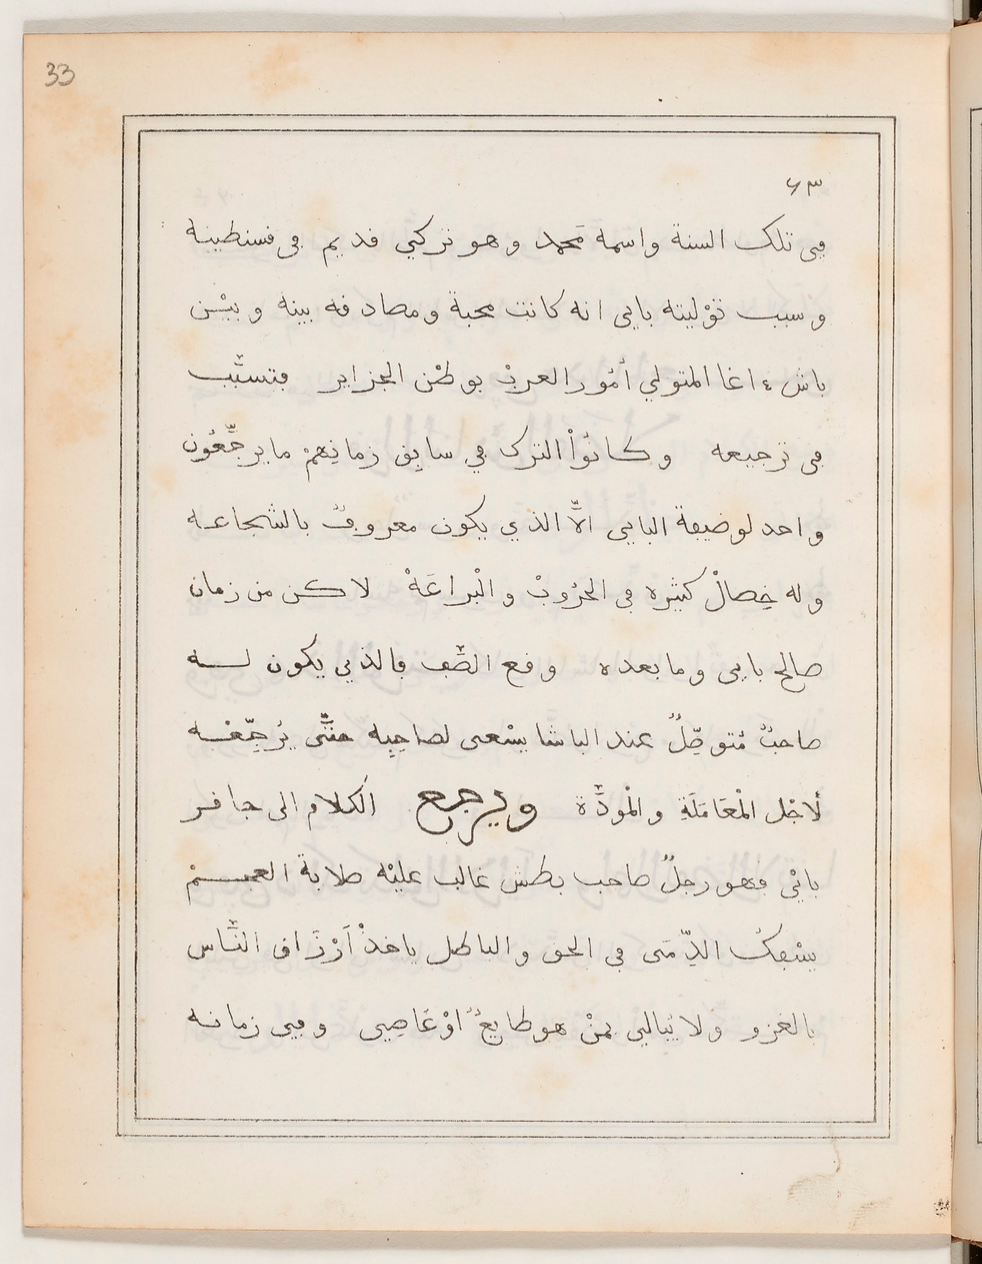 33
٦٣
في تلك السنة واسمه مَحمد وهو تركي قديم في قسنطينه
وسبب توْليته بايي انه كانت محبة ومصادقه بينه وبيْن
باش ءاغا المتولي أمُور العربْ بوطْن الجزاير فتسبَّب
في ترجيعه وكانُواْ الترك في سابق زمانِهمْ ما يرجّعُون
واحد لوضيفة البايي الاَّ الذي يكون معروفٌ بالشجاعه
وله خِصالْ كثيره في الحرُوبْ والْبراعَةْ لاكن من زمان
صالح بايي وما بعده وقع الصَّف فالذي يكون لــه
صاحبٌ مُتوصِّلٌ عند الباشا يسْعى لصاحِبه حتَّى يُرجّعْــه
لاجْل الْمعَامَلَةِ والْمودَّة ويرجع الكلام الى جاقر
بايْي فهو رجلٌ صاحب بطش غالب عليْه صلابة العجــمْ
يسْفكُ الدِّمَى في الحق والباطل ياخذْ اَرْزَاق النَّاس
بالغزو ولا يُبالي بمنْ هو طايعٌ اوْ عَاصِي وفي زمانــه